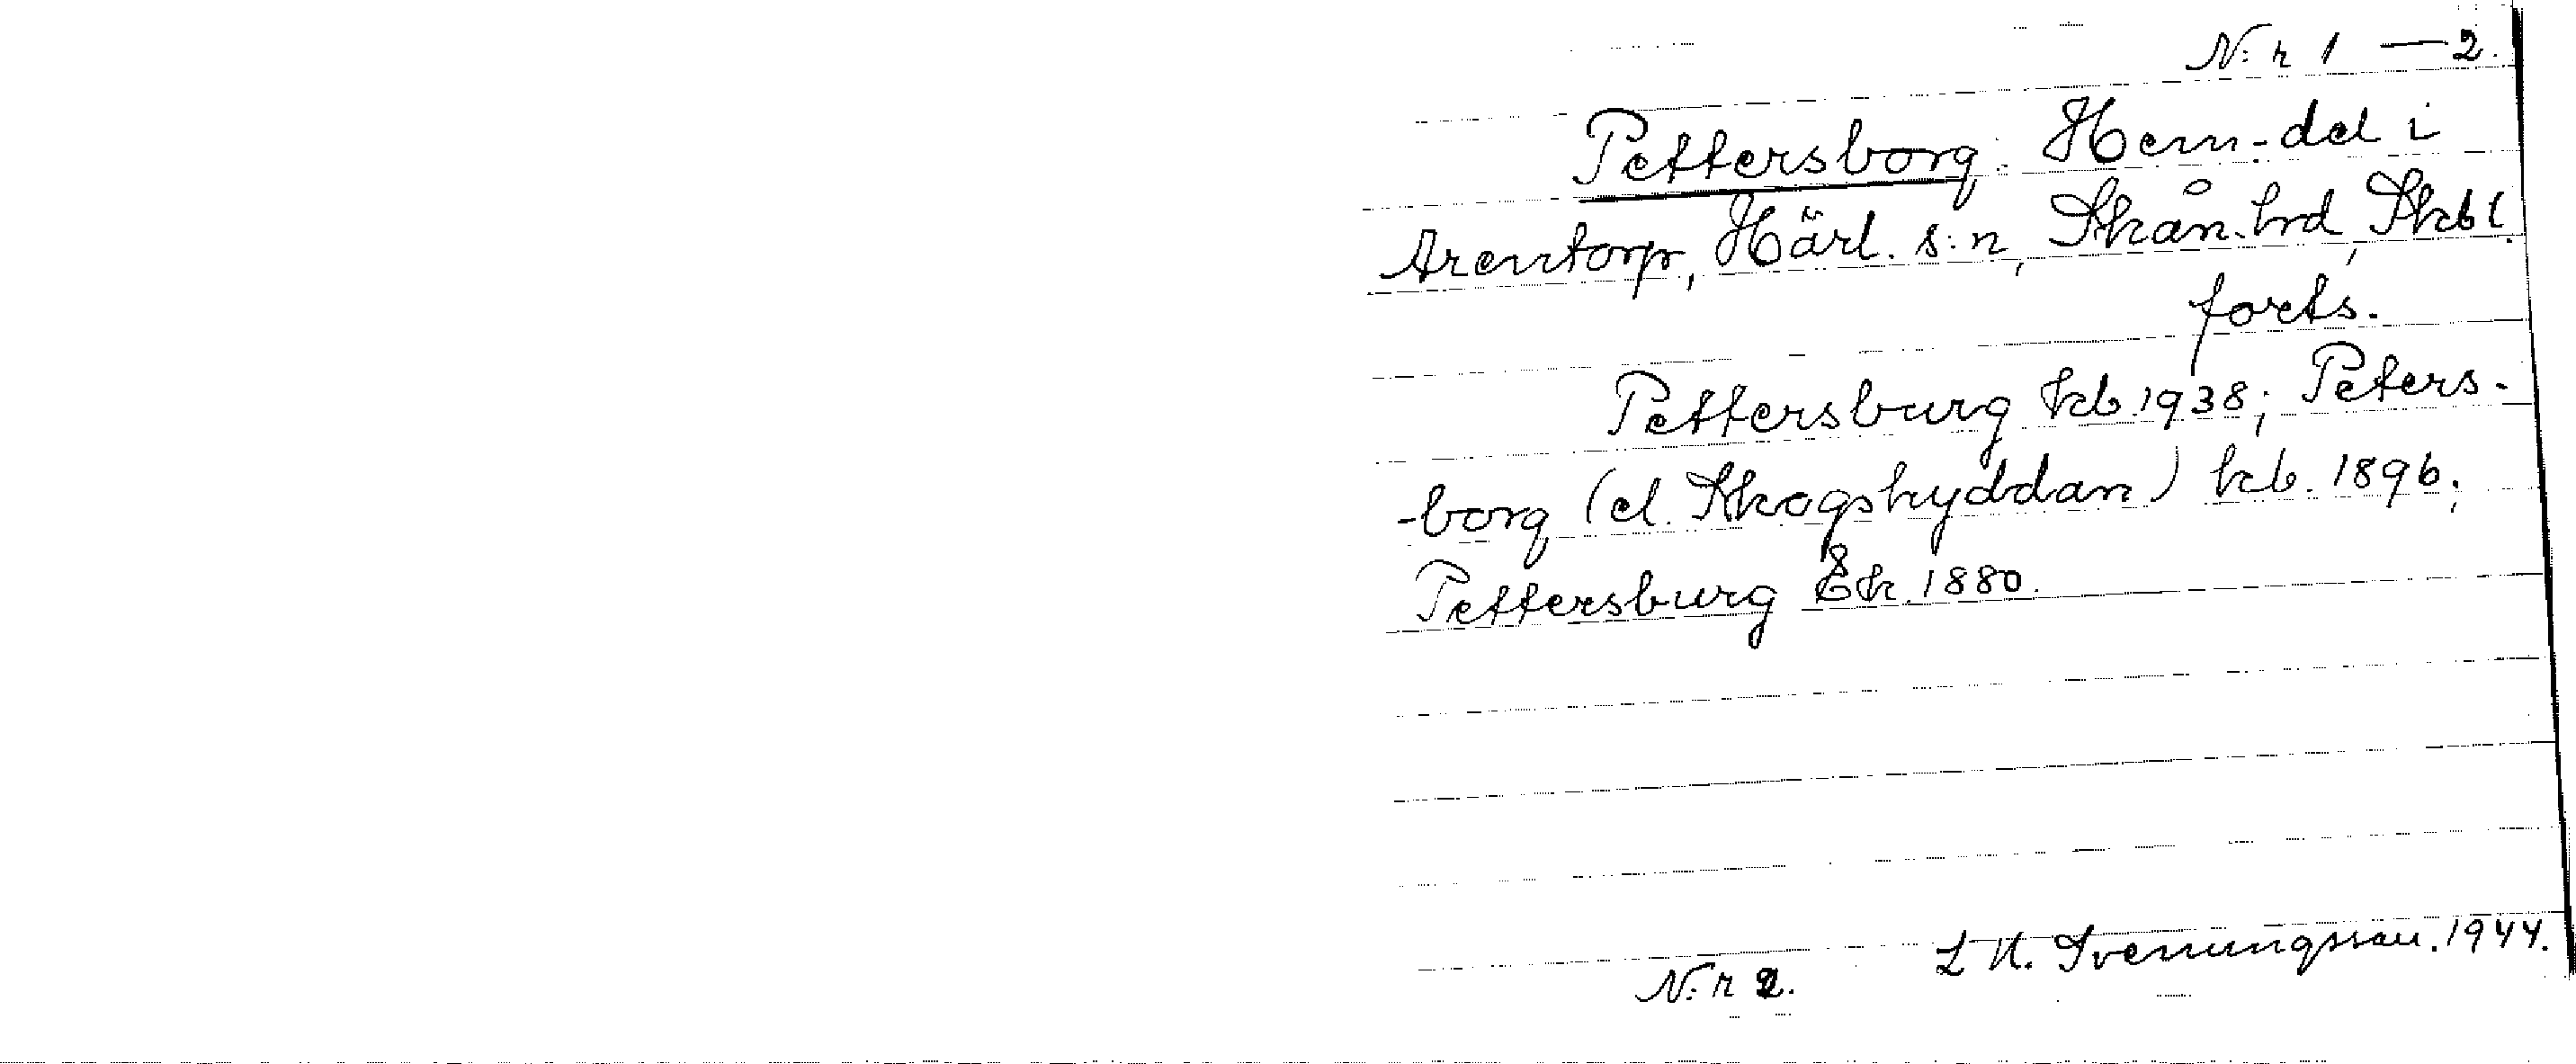 N:r 1 — 2.
Pettersborg: Hem.-del i
Arentorp, Härl. s:n, Skån. hrd, Skbl.
forts.
Pettersburg kb. 1938; Peters-
-borg (el. Skogshyddan) kb. 1896;
Pettersburg Ek. 1880.
L N. Svenungsson. 1944.
N:r 2.